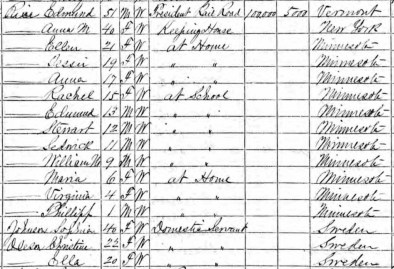 Rice Edmund 51 M W President Rail Road 100000 5000 Vermont
—— Anna M 40 F W Keeping House New York
—— Ellen 21 F W at Home Minnesota
—— Jessie 19 F W " " Minnesota
—— Anna 17 F W " " Minnesota
—— Rachel 15 F W at School Minnesota
—— Edmund 13 M W " " Minnesota
—— Stewart 12 M W " " Minnesota
—— Sedwick 11 M W " " Minnesota
—— William W 9 M W " " Minnesota
—— Maria 6 F W at Home Minnesota
—— Virginia 4 F W " " Minnesota
—— Philipp 1 M W " " Minnesota
Johnson Sophia 40 F W Domestic Servant Sweden
Christine 22 F W " " Sweden
—— Ella 20 F W " " Sweden